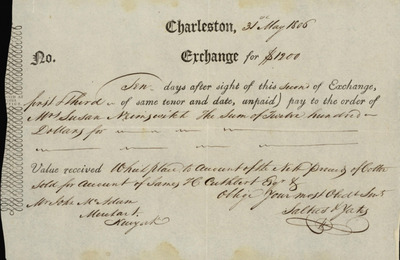 Charleston, 31st May 1806
No. Exchange for $1200
Ten days after sight of this Second of Exchange,
first & Third of same tenor and date, unpaid) pay to the order of
Mrs Susan The Sum of Twelve hundred
Dollars for
Value received Which place to account of the Nett proceeds of Cotton
Sold for account of James H. Cuthbert Esqr &
Oblige Your most Obdt Servts
Mr John McAdam
Merchant